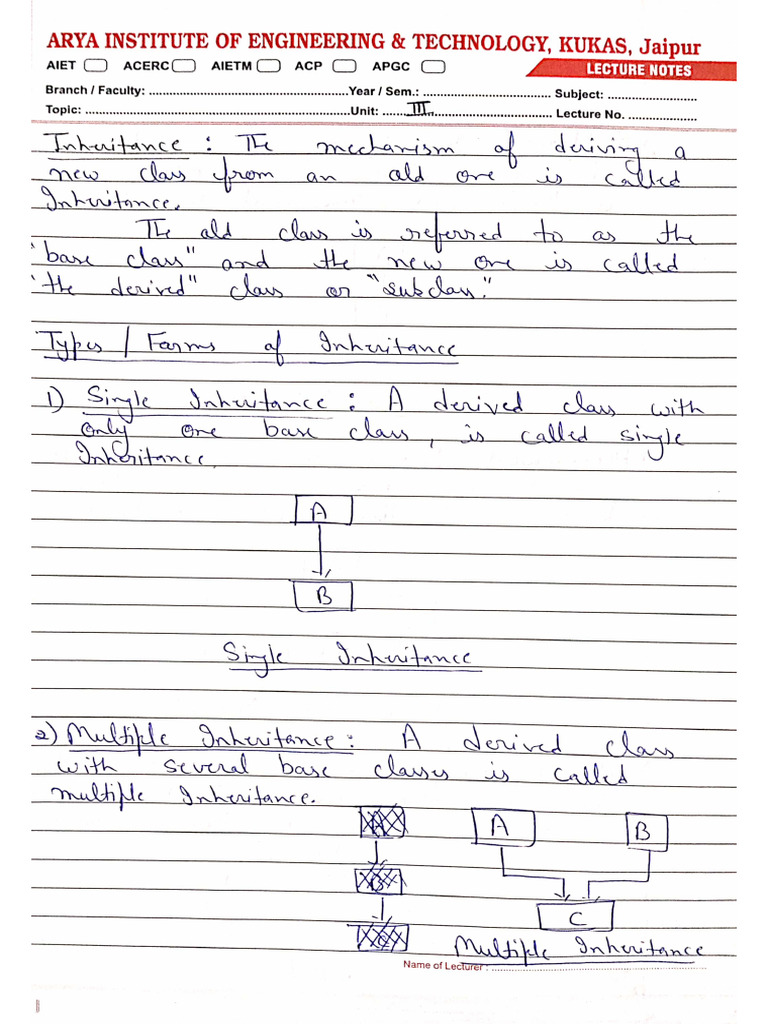 ARYA INSTITUTE OF ENGINEERING & TECHNOLOGY, KUKAS, Jaipur
AIET ACERC AIETM ACP APGC
LECTURE NOTES
Branch / Faculty: ............ Year / Sem.: ............ Subject: ............
Topic: ............ Unit: ...... III ............ Lecture No. ............
Inheritance : The mechanism of deriving a
new class from an old one is called
Inheritance.
The old class is referred to as the
"base class" and the new one is called
"the derived" class or "subclass."
Types / Forms of Inheritance
1) Single Inheritance : A derived class with
only one base class, is called single
Inheritance.
A
B
Single Inheritance
2) Multiple Inheritance : A derived class
with several base classes is called
multiple Inheritance.
A A B
B
C
C
Multiple Inheritance
Name of Lecturer : ............